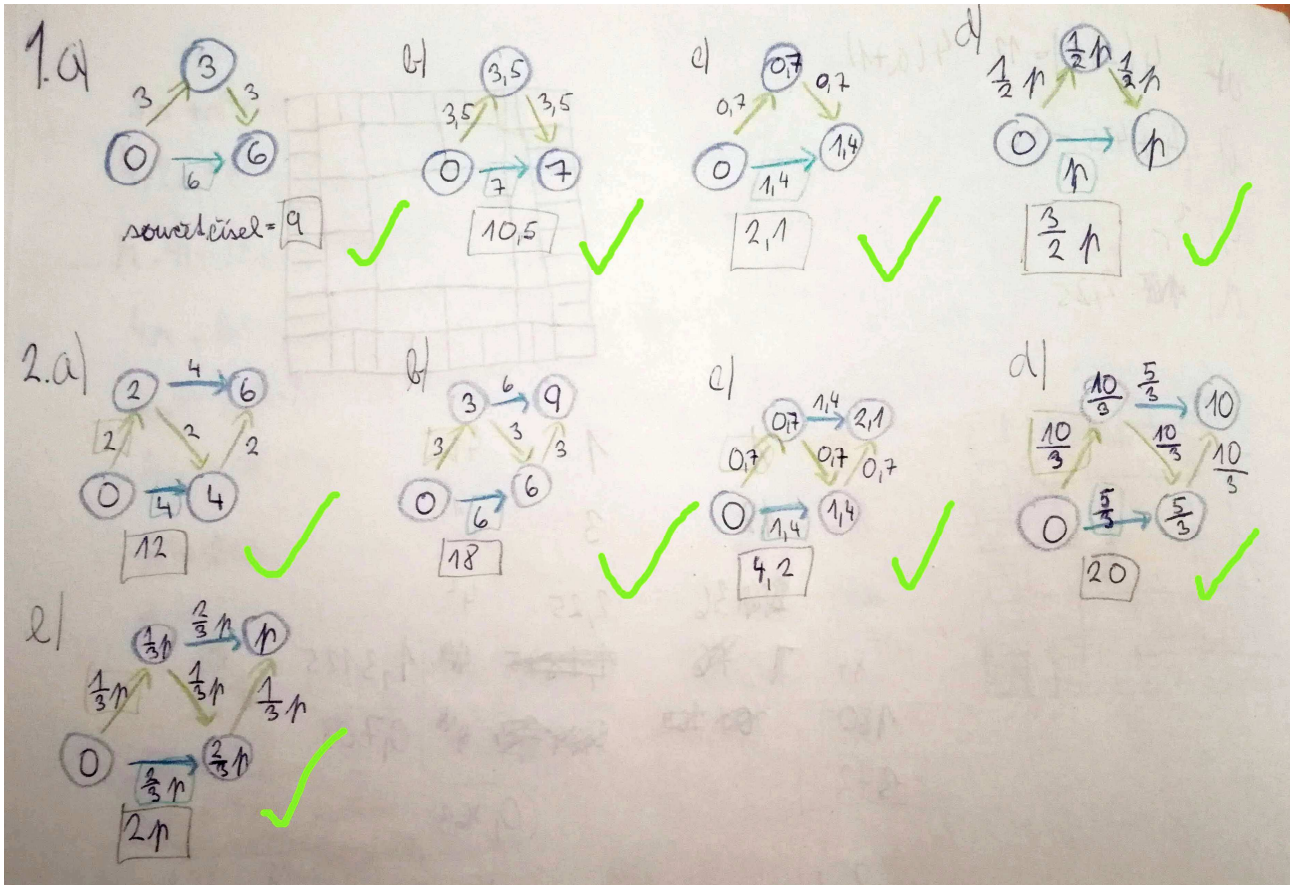 1.a)
3
3
3
0
6
6
součet čísel = 9
b)
3,5
3,5
3,5
0
7
7
10,5
c)
0,7
0,7
0,7
0
1,4
1,4
2,1
d)
1/2 p
1/2 p
1/2 p
0
p
p
3/2 p
2.a)
2
4
6
2
2
2
0
4
4
12
b)
3
6
9
3
3
3
0
6
6
18
c)
0,7
1,4
2,1
0,7
0,7
0,7
0
1,4
1,4
4,2
d)
10/3
5/3
10
10/3
10/3
10/3
0
5/3
5/3
20
e)
1/3 p
2/3 p
p
1/3 p
1/3 p
1/3 p
0
2/3 p
2/3 p
2p